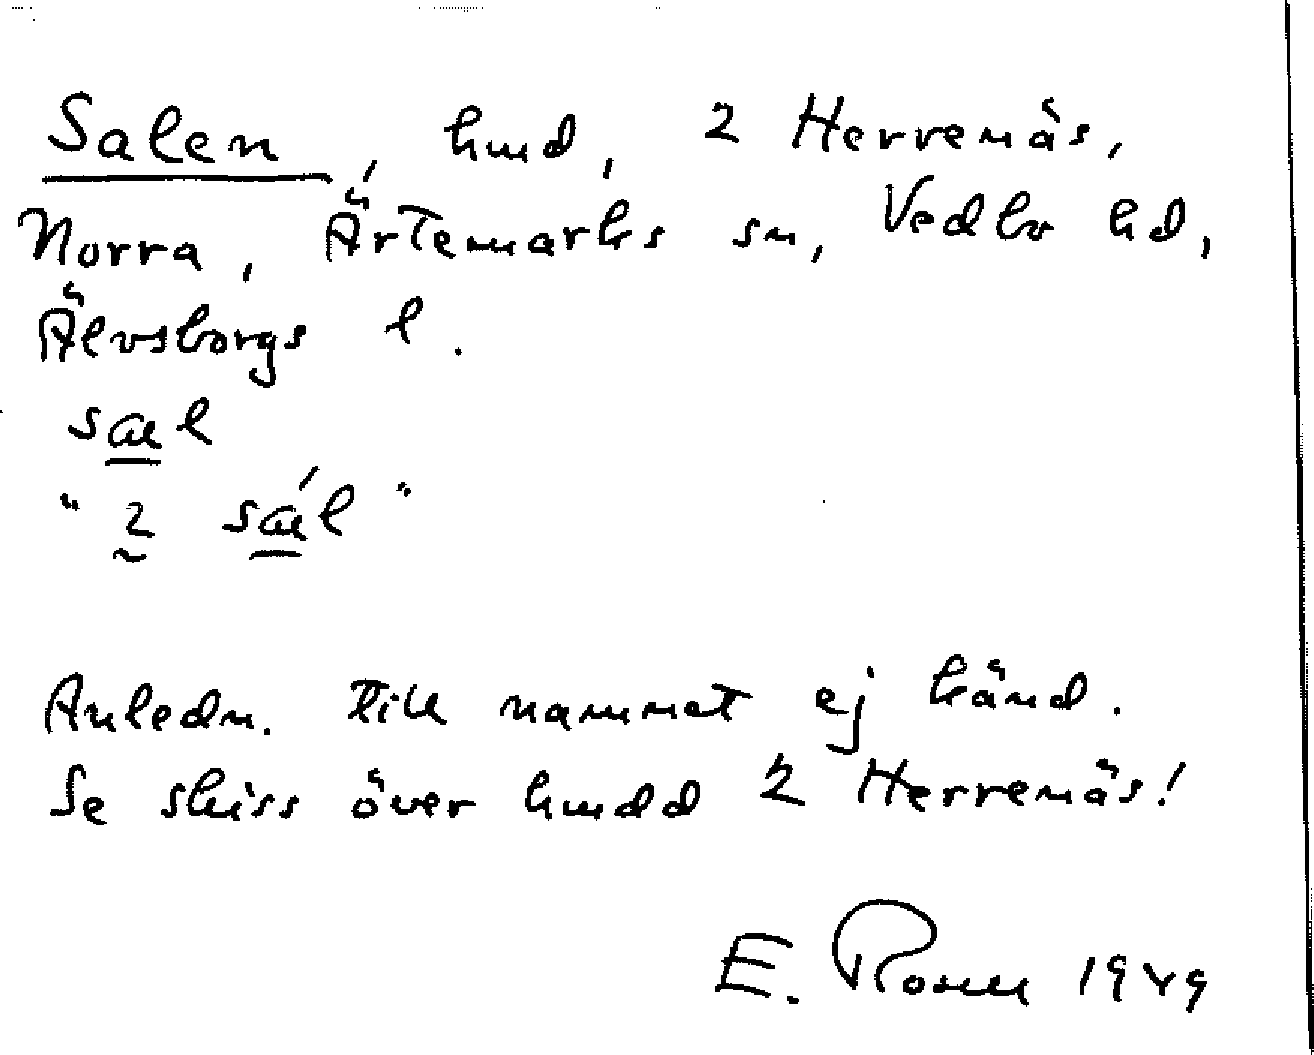 Salen, hmd, 2 Herrenäs,
Norra, Ärtemarks sn, Vedbo hd,
Älvsborgs l.
sɑel
"2 sɑ́el"
Anledn. till namnet ej känd.
Se skiss över hmdd 2 Herrenäs!
E. 1949